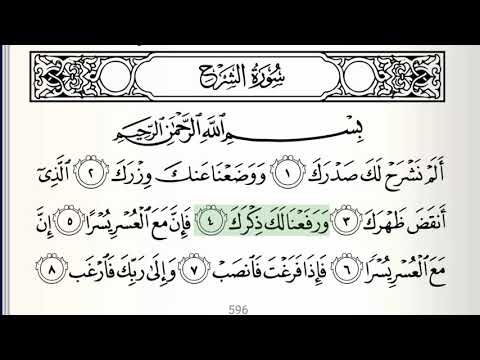 سُورَةُ الشَّرْحِ
بِسْمِ اللَّهِ الرَّحْمَٰنِ الرَّحِيمِ
أَلَمْ نَشْرَحْ لَكَ صَدْرَكَ ١ وَوَضَعْنَا عَنكَ وِزْرَكَ ٢ الَّذِي
أَنقَضَ ظَهْرَكَ ٣ وَرَفَعْنَا لَكَ ذِكْرَكَ ٤ فَإِنَّ مَعَ الْعُسْرِ يُسْرًا ٥ إِنَّ
مَعَ الْعُسْرِ يُسْرًا ٦ فَإِذَا فَرَغْتَ فَانصَبْ ٧ وَإِلَىٰ رَبِّكَ فَارْغَب ٨
596